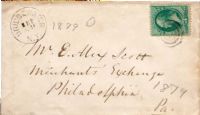 1879
Mr. E. Scott
Merchants Exchange
Philadelphia
1879
Pa.